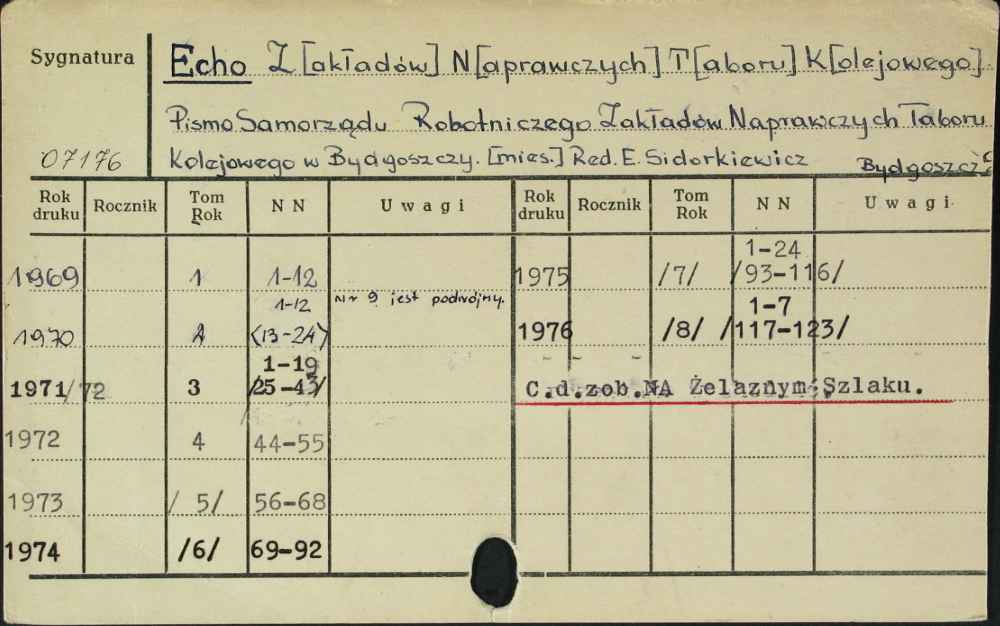 Sygnatura
Echo Z[akładów] N[aprawczych] T[aboru] K[olejowego].
Pismo Samorządu Robotniczego Zakładów Naprawczych Taboru
07176
Kolejowego w Bydgoszczy. [mies.] Red. E. Sidorkiewicz Bydgoszcz
Rok druku Rocznik Tom Rok N N Uwagi Rok druku Rocznik Tom Rok N N Uwagi
1969 1 1-12
1-12 Nr 9 jest podwójny.
1970 2 (13-24)
1-19
1971/72 3 /25-43/
1972 4 44-55
1973 / 5/ 56-68
1974 /6/ 69-92
1-24
1975 /7/ /93-116/
1-7
1976 /8/ /117-123/
C.d.zob.NA Żelaznym Szlaku.